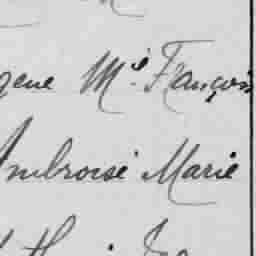 gene Mie François
Ambroise Marie